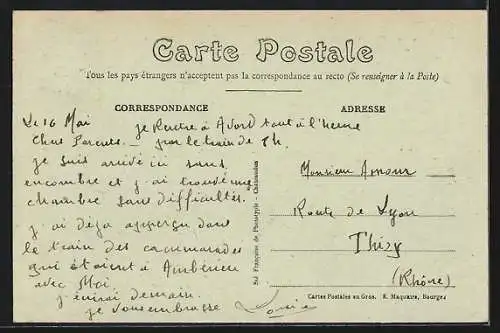 Carte Postale
Tous les pays étrangers n'acceptent pas la correspondance au recto (Se renseigner à la Poste)
CORRESPONDANCE
ADRESSE
Le 16 Mai
je Rentre à Avord tout à l'heure
Chers Parents - par le train de 7h.
je suis arrivé ici sans
encombre et j'ai trouvé une
chambre sans difficultés.
j'ai déja apperçu dans
le train des cammarades
qui étaient à Ambérieu
avec Moi.
j'écirai demain.
je vous embrasse
Louis
Sté Française de Phototypie - Châteaudun
Monsieur Amour
Route de Lyon
Thizy
(Rhône)
Cartes Postales en Gros. E. Maquaire, Bourges